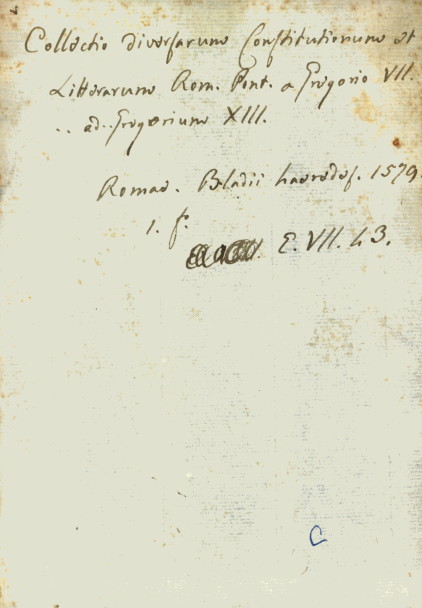 Collectio diversarum Constitutionum et
Litterarum Rom. Pont. a Gregorio VII.
.. ad Gregorium XIII.
Romae. Bladii haered. 1579.
1. f.
E. VII. 43.
C